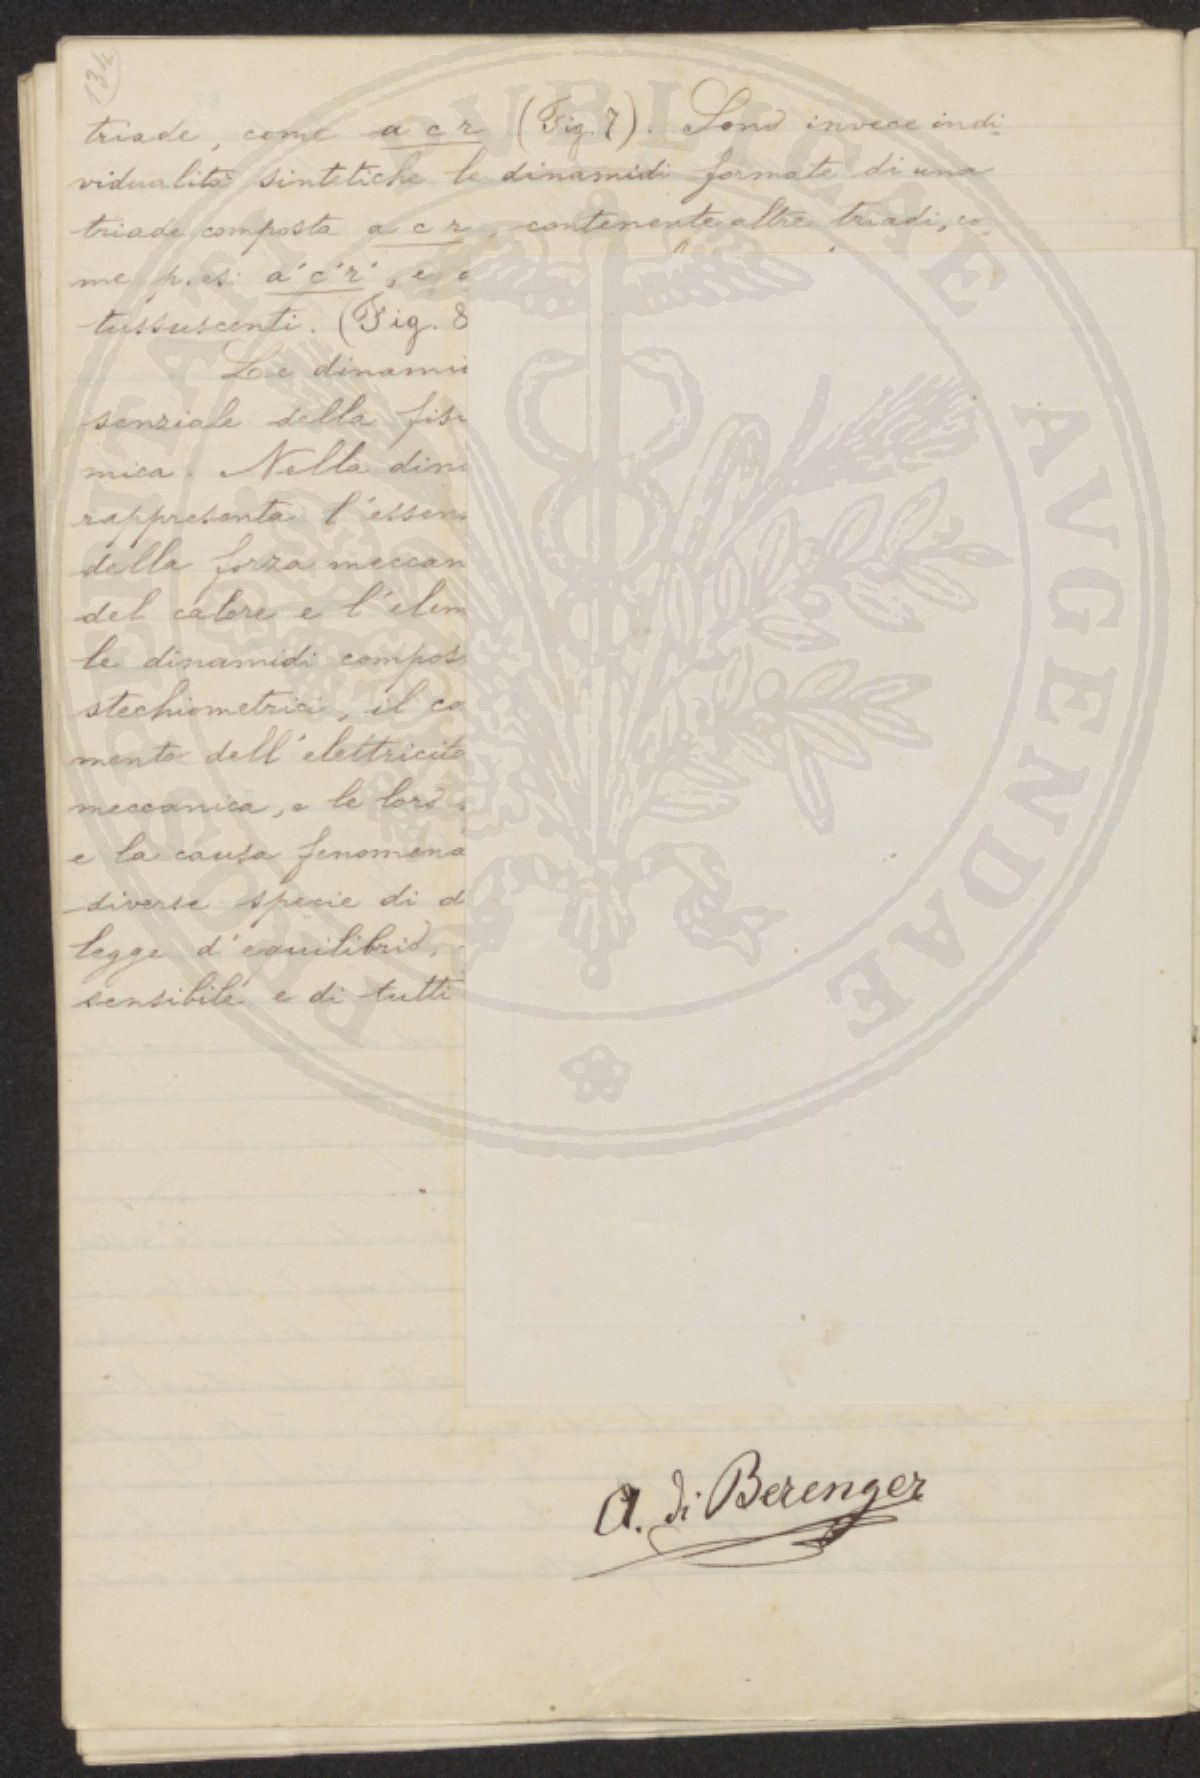 134
triade, come a c r (Fig. 7). Sono invece indi-
vidualità sintetiche le dinamidi formate di una
triade composta a c r, contenente altre triadi, co-
me p. es: a' c' r', e
tussuscenti. (Fig. 8
Le dinami
senziale della fisi
mica. Nella dina
rappresenta l'essen
della forza meccan
del calore e l'elem
le dinamidi compos
stechiometrici, il co
mento dell'elettricità
meccanica, e le loro
e la causa fenomena
diverse specie di d
legge d'equilibrio,
sensibile e di tutti
A. di Berenger
PVBLICAE AVGENDAE PROSPERITATI